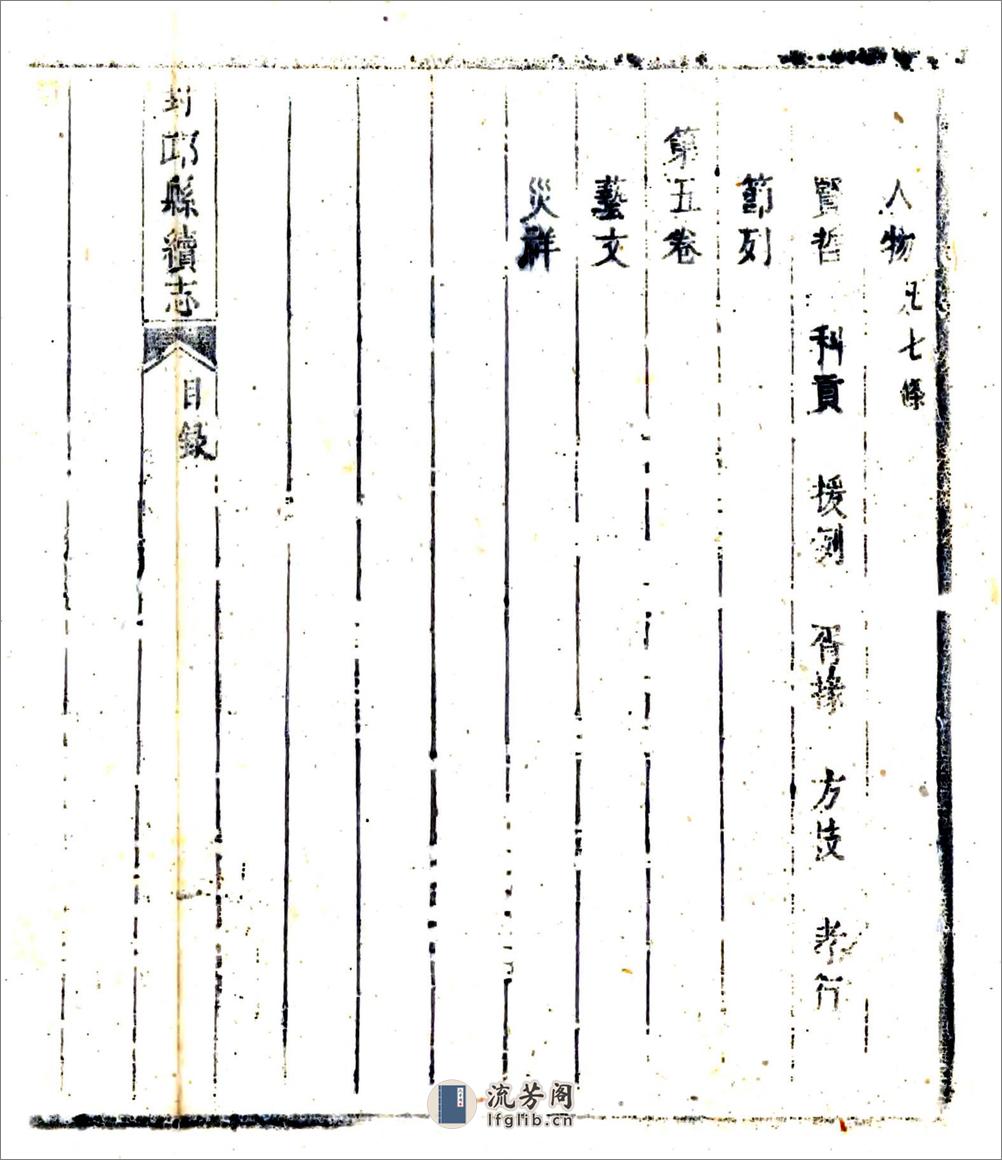 人物 凡七條
賢哲 科貢 援例 胥掾 方技 孝行
節列
第五卷
藝文
災祥
封邱縣續志 目錄
流芳阁
lfglib.cn